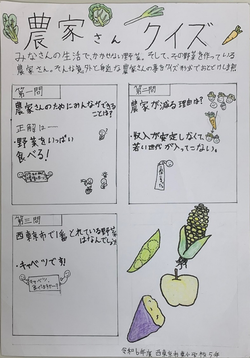 農家さん クイズ
みなさんの生活で、かかせない野菜。そして、その野菜を作っている
農家さん。そんな意外と身近な農家さんの事をクイズ形式でおとどけします
第一問
農家さんのためにみんなができる
ことは?
正解は…
・野菜をいっぱい
食べる!
第二問
農家が減る理由は?
・収入が安定しなくて
若い世代が入ってこない。
第三問
西東京市で1番とれている野菜
はなんでしょう
・キャベツです!
キャベツ、